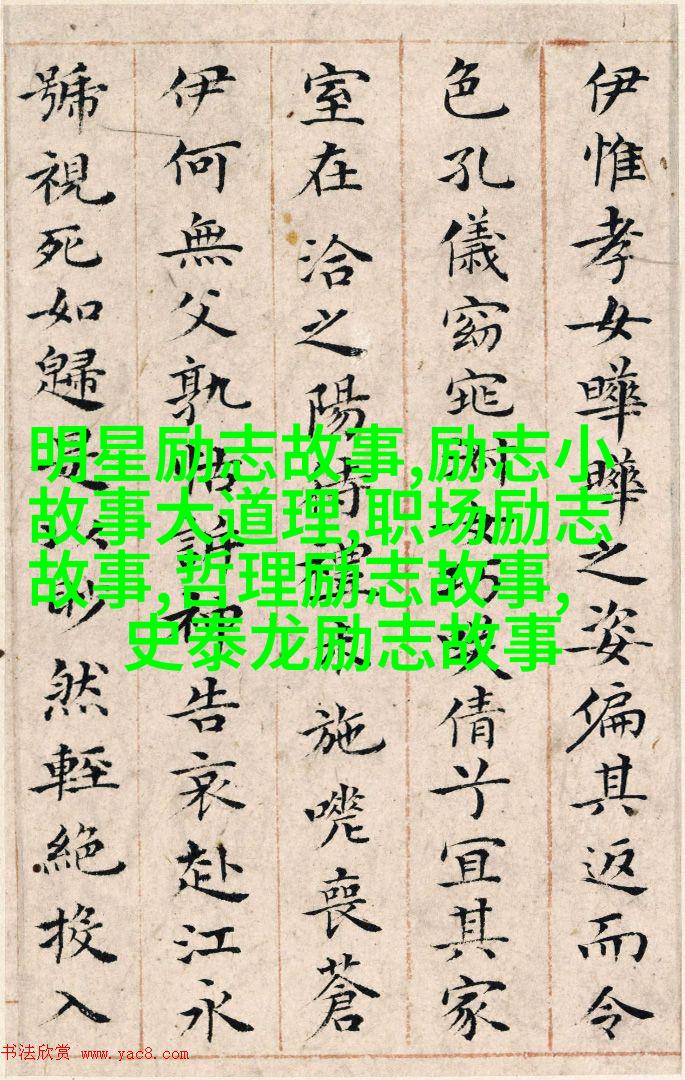 伊惟孝女曄曄之姿偏其返而令
色孔儀窈窕淑女巧笑倩兮宜其家
室在洽之陽待禮未施嗟喪蒼
伊何無父孰怙訴神告哀赴江永
號視死如歸是以眇然輕絕投入
明星励志故事,励志小
故事大道理,职场励志
故事,哲理励志故事,
史泰龙励志故事
书法欣赏 www.yac8.com